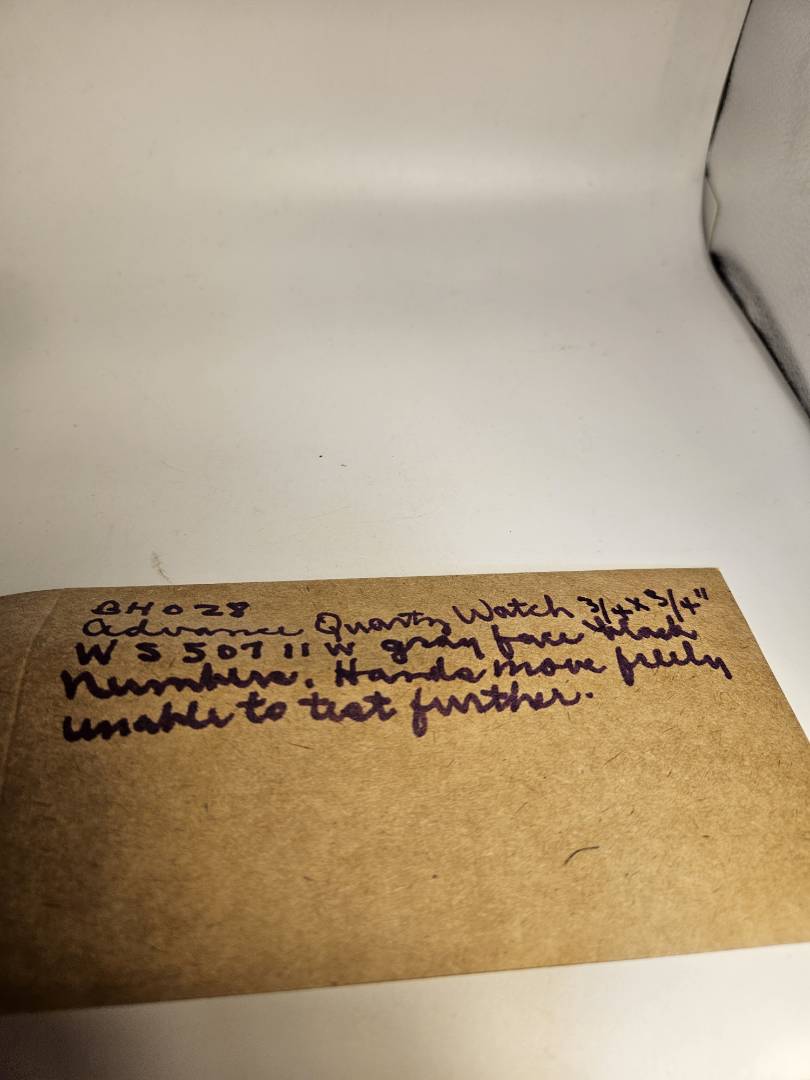 BH028
Advance Quartz Watch 3/4 x 3/4"
W S 50711 W gray face black
Numbers. Hands move freely
unable to test further.